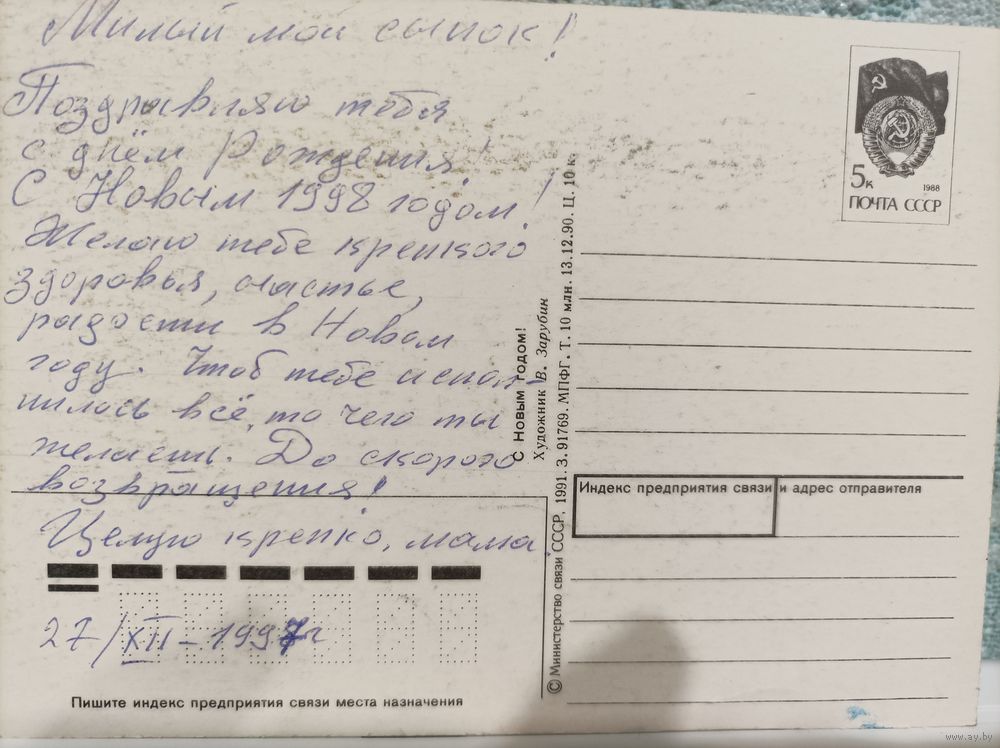 Милый мой сынок!
Поздравляю тебя
с днём Рождения!
С Новым 1998 годом!
Желаю тебе крепкого
здоровья, счастье,
радости в Новом
году. Чтоб тебе испол-
нилось всё, то чего ты
желаешь. До скорого
возвращения!
Целую крепко, мама.
27/XII-1997г
Пишите индекс предприятия связи места назначения
С Новым годом!
Художник В. Зарубин
© Министерство связи СССР, 1991. З. 91769. МПФГ. Т. 10 млн. 13.12.90. Ц. 10 к.
5к
1988
ПОЧТА СССР
Индекс предприятия связи и адрес отправителя
www.ay.by